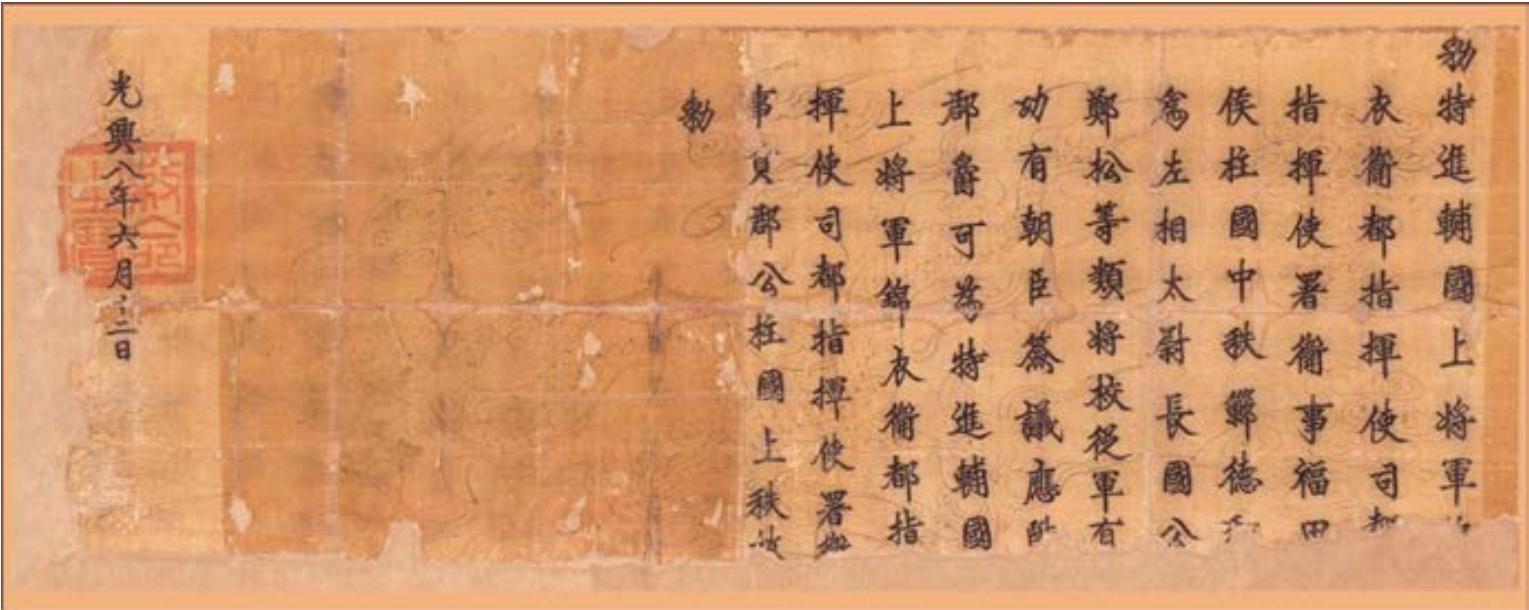 勑特進輔國上將軍
衣衛都指揮使司都
指揮使署衛事福田
侯柱國中秩鄭德
為左相太尉長國公
鄭松等類將校從軍有
功有朝臣僉議應陞
郡爵可為特進輔國
上將軍錦衣衛都指
揮使司都指揮使署衛
事 郡公柱國上秩
勑
光興八年六月十二日